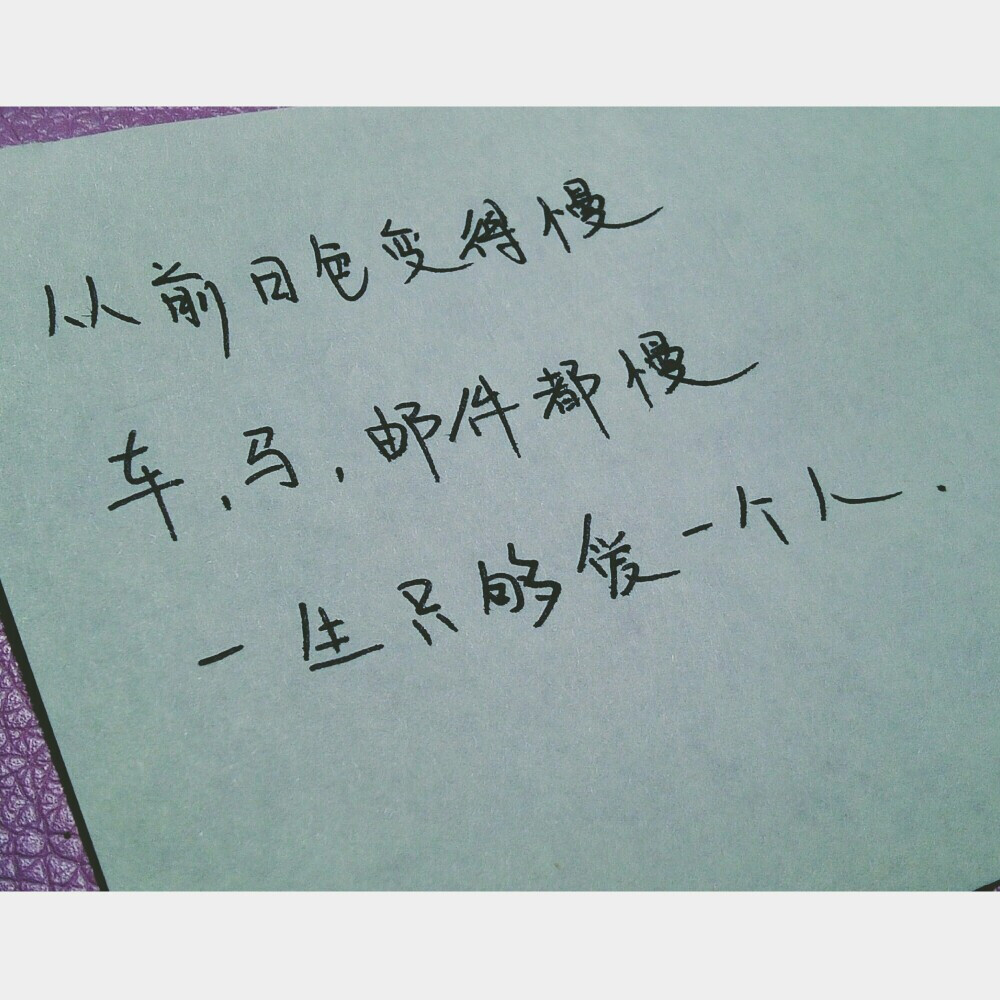 从前日色变得慢
车,马,邮件都慢
一生只够爱一个人.